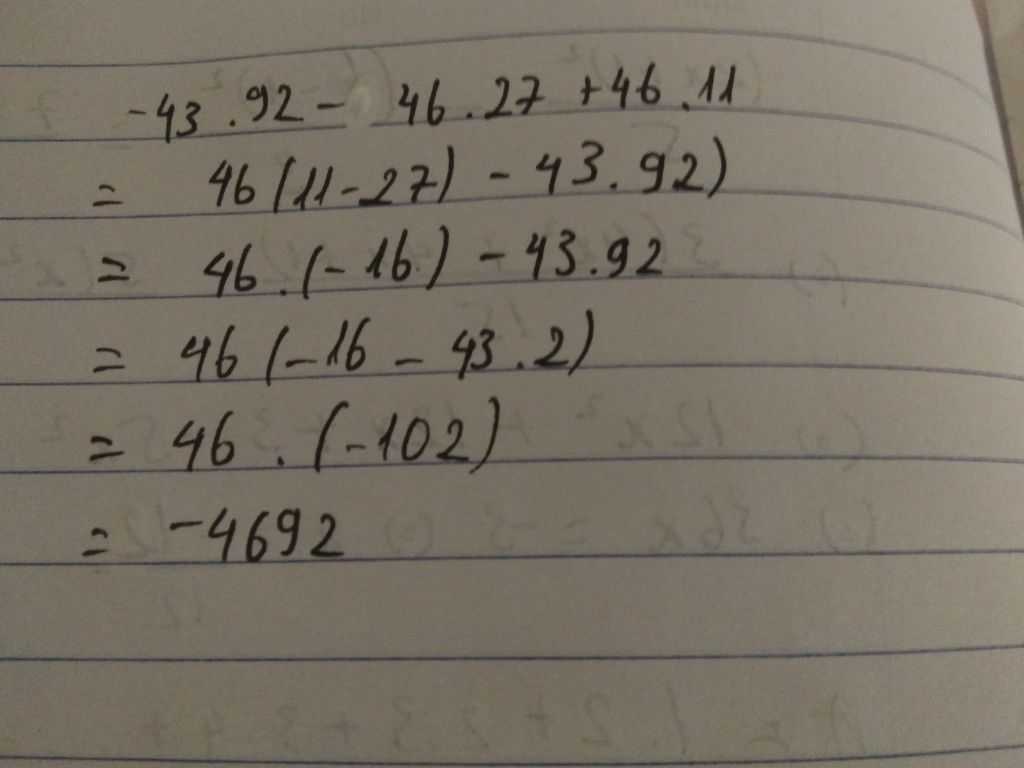 -43.92 - 46.27 + 46.11
= 46(11-27) - 43.92)
= 46.(-16) - 43.92
= 46(-16 - 43.2)
= 46.(-102)
= -4692